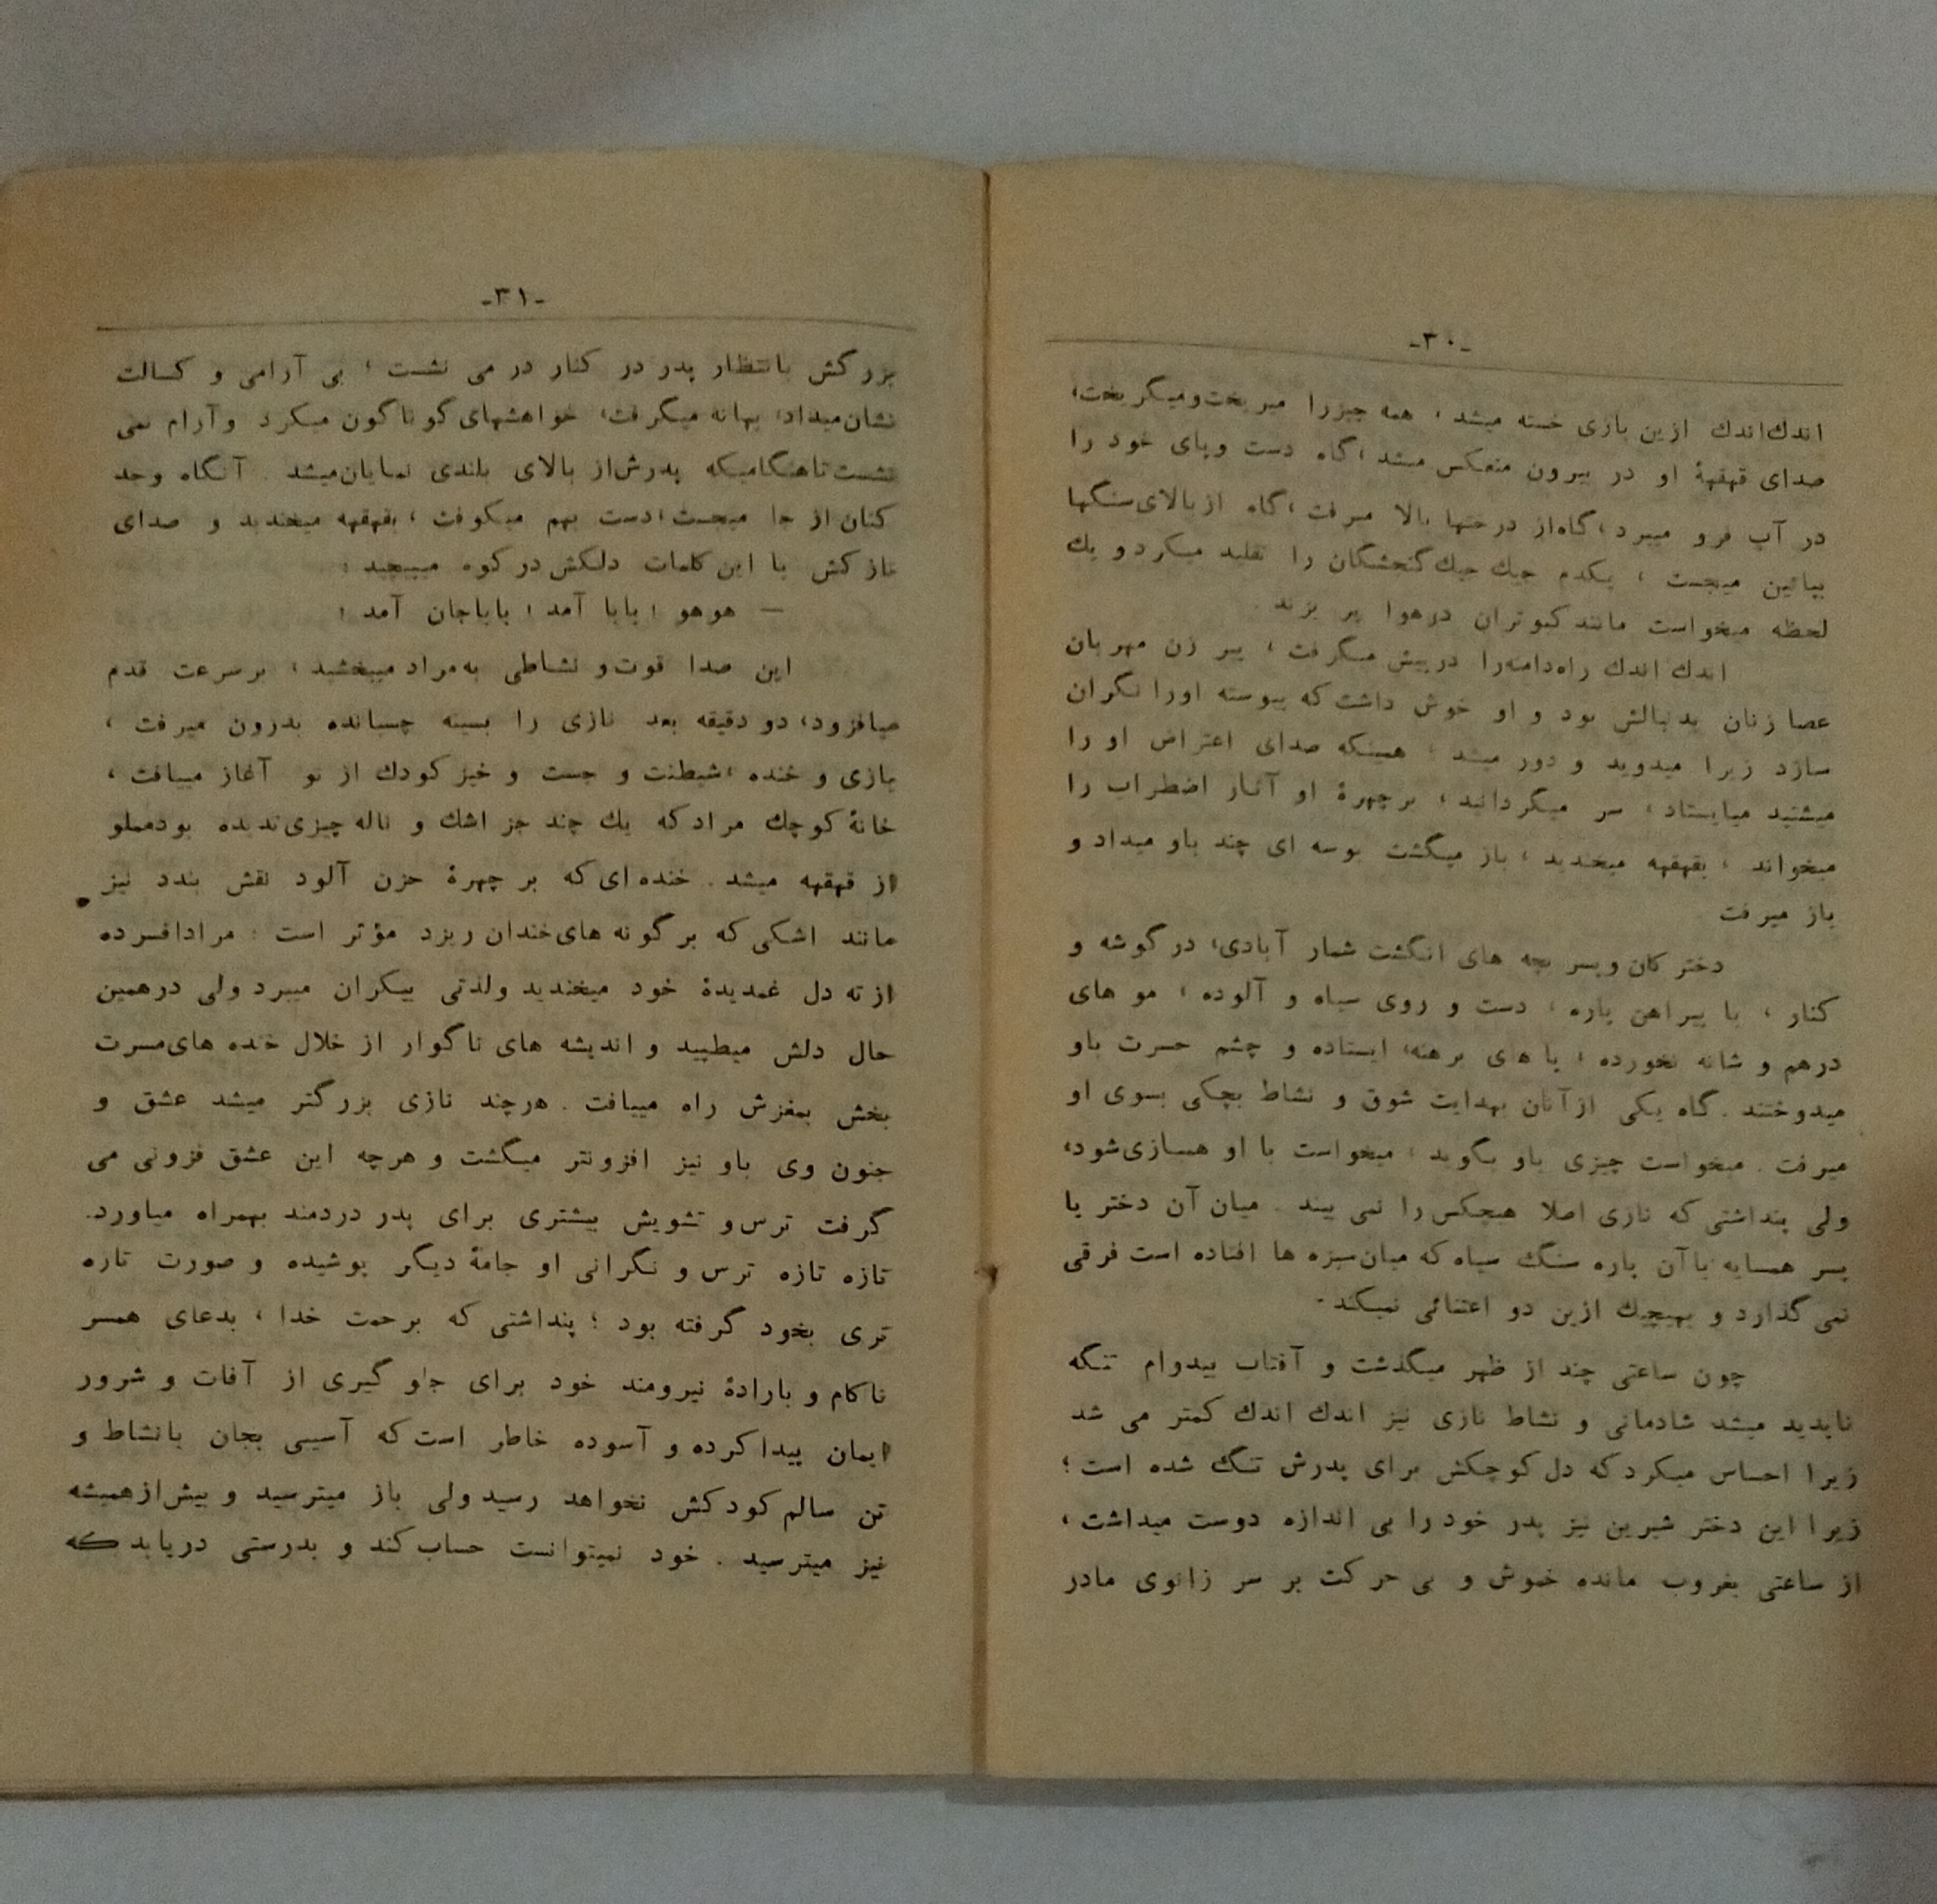 -۳۰-
اندك‌اندك ازین بازی خسته میشد ، همه چیز را میریخت‌ومیگریخت،
صدای قهقههٔ او در بیرون منعکس میشد ،گاه دست وپای خود را
در آب فرو میبرد ،گاه‌از درختها بالا میرفت ،گاه ازبالای‌سنگها
بپائین میجست ، یکدم جیك جیك گنجشگان را تقلید میکرد و یك
لحظه میخواست مانند کبوتران درهوا پر بزند .
اندك اندك راه‌دامنه‌را درپیش میگرفت ، پیر زن مهربان
عصا زنان بدنبالش بود و او خوش داشت‌که پیوسته اورا نگران
سازد زیرا میدوید و دور میشد ؛ همینکه صدای اعتراض او را
میشنید میایستاد ، سر میگردانید ، برچهرهٔ او آثار اضطراب را
میخواند ، بقهقهه میخندید ، باز میگشت بوسه ای چند باو میداد و
باز میرفت
دخترکان وپسر بچه های انگشت شمار آبادی، درگوشه و
کنار ، با پیراهن پاره ، دست و روی سیاه و آلوده ، مو های
درهم و شانه نخورده ، پا های برهنه، ایستاده و چشم حسرت باو
میدوختند . گاه یکی ازآنان بهدایت شوق و نشاط بچکی بسوی او
میرفت . میخواست چیزی باو بگوید ، میخواست با او همبازی‌شود،
ولی پنداشتی‌که نازی اصلا هیچکس‌را نمی بیند . میان آن دختر یا
پسر همسایه باآن پاره سنگ سیاه‌که میان‌سبزه ها افتاده است فرقی
نمی‌گذارد و بهیچیك ازین دو اعتنائی نمیکند.
چون ساعتی چند از ظهر میگذشت و آفتاب بیدوام تنگه
ناپدید میشد شادمانی و نشاط نازی نیز اندك اندك کمتر می شد
زیرا احساس میکردکه دل‌کوچکش برای پدرش تنگ شده است ؛
زیرا این دختر شیرین نیز پدر خودرا بی اندازه دوست میداشت ،
از ساعتی بغروب مانده خموش و بی‌حرکت بر سر زانوی مادر
-۳۱-
بزرگش بانتظار پدر در کنار در می نشست ، بی آرامی و کسالت
نشان‌میداد، بهانه میگرفت، خواهشهای‌گوناگون میکرد وآرام نمی
نشست‌تاهنگامیکه پدرش‌از بالای بلندی نمایان‌میشد . آنگاه وجد
کنان از جا میجست،دست بهم میکوفت ، بقهقهه میخندید و صدای
نازکش با این‌کلمات دلکش درکوه میپیچید :
— هوهو ، بابا آمد ، باباجان آمد ،
این صدا قوت‌و نشاطی به‌مراد میبخشید ، برسرعت قدم
میافزود، دو دقیقه بعد نازی را بسینه چسبانده بدرون میرفت ،
بازی و خنده ،شیطنت و جست و خیز کودك از نو آغاز مییافت ،
خانهٔ کوچك مرادکه یك چند جز اشك و ناله چیزی‌ندیده بودمملو
از قهقهه میشد . خنده‌ای‌که بر چهرهٔ حزن آلود نقش بندد نیز
مانند اشکی‌که برگونه های‌خندان ریزد مؤثر است ؛ مرادافسرده
ازته دل غمدیدهٔ خود میخندید ولذتی بیکران میبرد ولی درهمین
حال دلش میطپید و اندیشه های ناگوار از خلال خنده های‌مسرت
بخش بمغزش راه مییافت . هرچند نازی بزرگتر میشد عشق و
جنون وی باو نیز افزونتر میگشت و هرچه این عشق فزونی می
گرفت ترس‌و تشویش بیشتری برای پدر دردمند بهمراه میاورد.
تازه تازه ترس و نگرانی او جامهٔ دیگر پوشیده و صورت تازه
تری بخود گرفته بود ؛ پنداشتی که برحمت خدا ، بدعای همسر
ناکام و بارادهٔ نیرومند خود برای جلوگیری از آفات و شرور
ایمان پیداکرده و آسوده خاطر است‌که آسیبی بجان بانشاط و
تن سالم‌کودکش نخواهد رسید ولی باز میترسید و بیش‌ازهمیشه
نیز میترسید . خود نمیتوانست حساب‌کند و بدرستی دریابد که